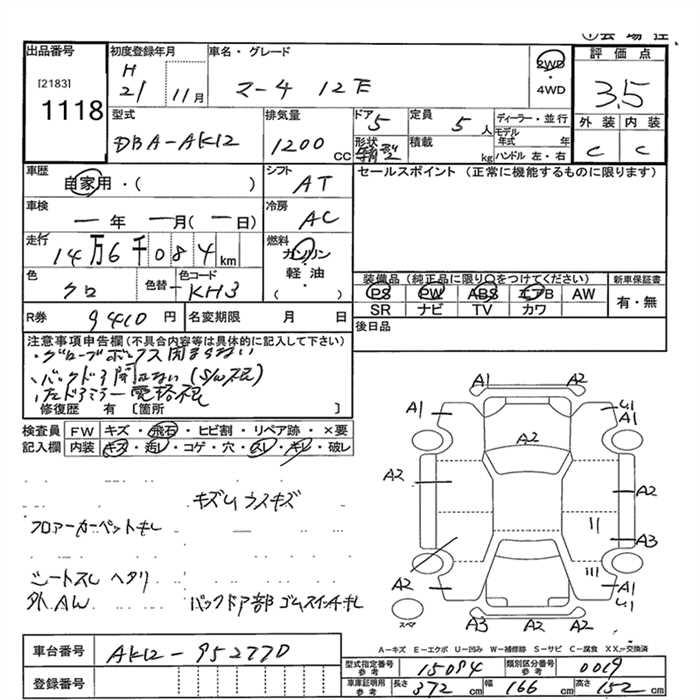 ①会場控
出品番号
[2183]
1118
初度登録年月
H
21
11月
車名・グレード
マーチ 12E
2WD
・
4WD
評価点
3.5
外装 内装
C C
型式
DBA-AK12
排気量
1200
cc
ドア
5
形状
定員
5人
積載
kg
ディーラー・並行
モデル年式 年
ハンドル 左・右
車歴
自家用・( )
シフト
AT
セールスポイント(正常に機能するものに限ります)
車検
一年 一月(一日)
冷房
AC
走行
14万6千084km
燃料
ガソリン
・
軽油
・
( )
色
クロ
色替
色コード
KH3
装備品(純正品に限り○をつけてください)
PS PW ABS エアB AW
SR ナビ TV カワ
新車保証書
有・無
R券
9410円
名変期限 月 日
後日品
注意事項申告欄(不具合内容等は具体的に記入して下さい)
・グローブボックス閉まらない
・バックドア閉
修復歴 有 [箇所 ]
検査員
記入欄
FW キズ・飛石・ヒビ割・リペア跡・×要
内装 キズ・汚レ・コゲ・穴・スレ・キレ・破レ
キズUウスキズ
フロアーカーペットキレ
シートスレ ヘタリ
外AW
バックドア部ゴムスイッチキレ
A1 A2
A1
U1
A1
A2
A2
A2
A3
A2
A1
U1
A3 A2
A2
スペア
A-キズ E-エクボ U-凹み W-補修跡 S-サビ C-腐食 XX-交換済
車台番号
AK12-952770
登録番号
型式指定番号
参考
15094
類別区分番号
参考
0019
車庫証明用
参考
長さ 372cm
幅 166cm
高さ 152cm